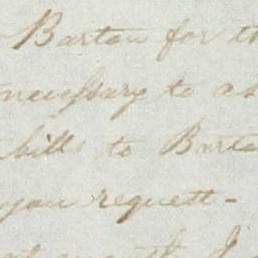 Barton for th
necessary to as
bills to Barto
you request-